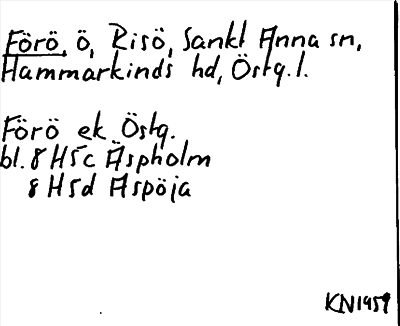 Förö, ö, Risö, Sankt Anna sn,
Hammarkinds hd, Östg. l.
Förö ek Östg.
bl. 8 H5c Äspholm
8 H5d Aspöja
KN1959